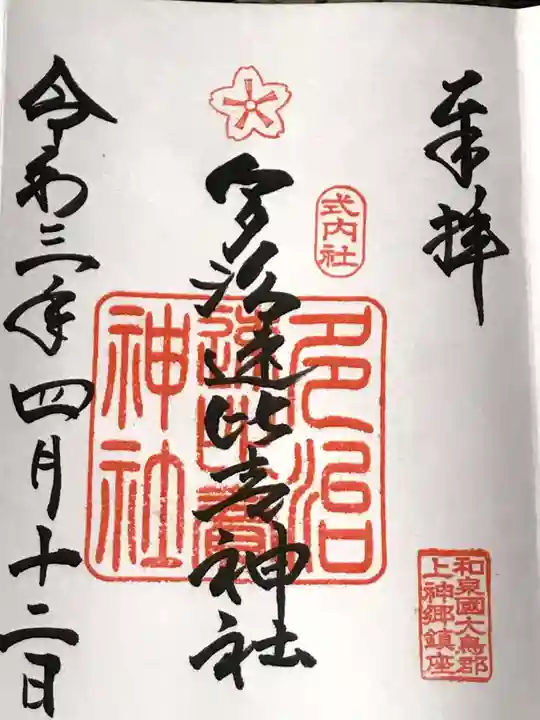 奉拝
式内社
和泉國大鳥郡
上神郷鎮座
多治速比売神社
多治
速比賣
神社
令和三年四月十二日